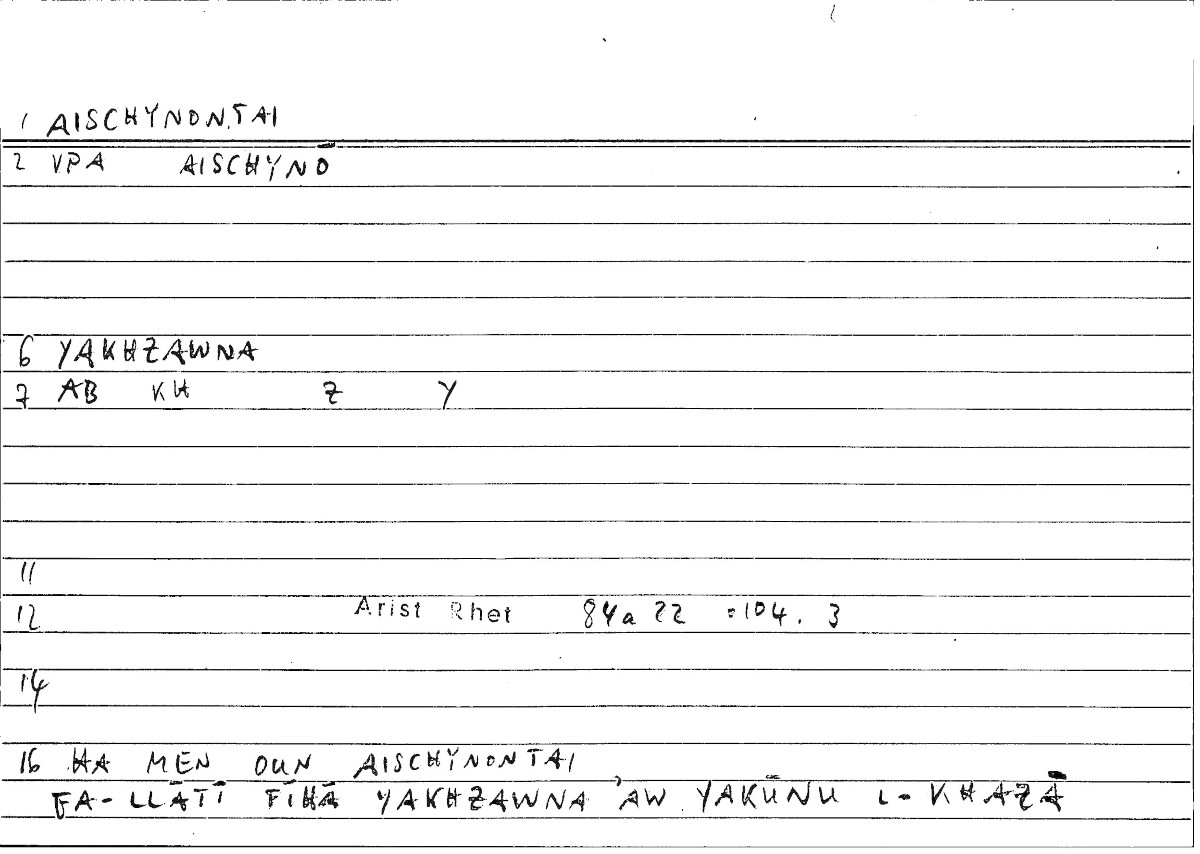 1 AISCHYNONTAI
2 VPA AISCHYNŌ
6 YAKHZAWNA
7 AB KH Z Y
11
12 Arist Rhet 84a 22 =104. 3
14
16 HA MEN OUN AISCHYNONTAI
FA-LLĀTĪ FĪHĀ YAKHZAWNA 'AW YAKŪNU L-KHAZĀ